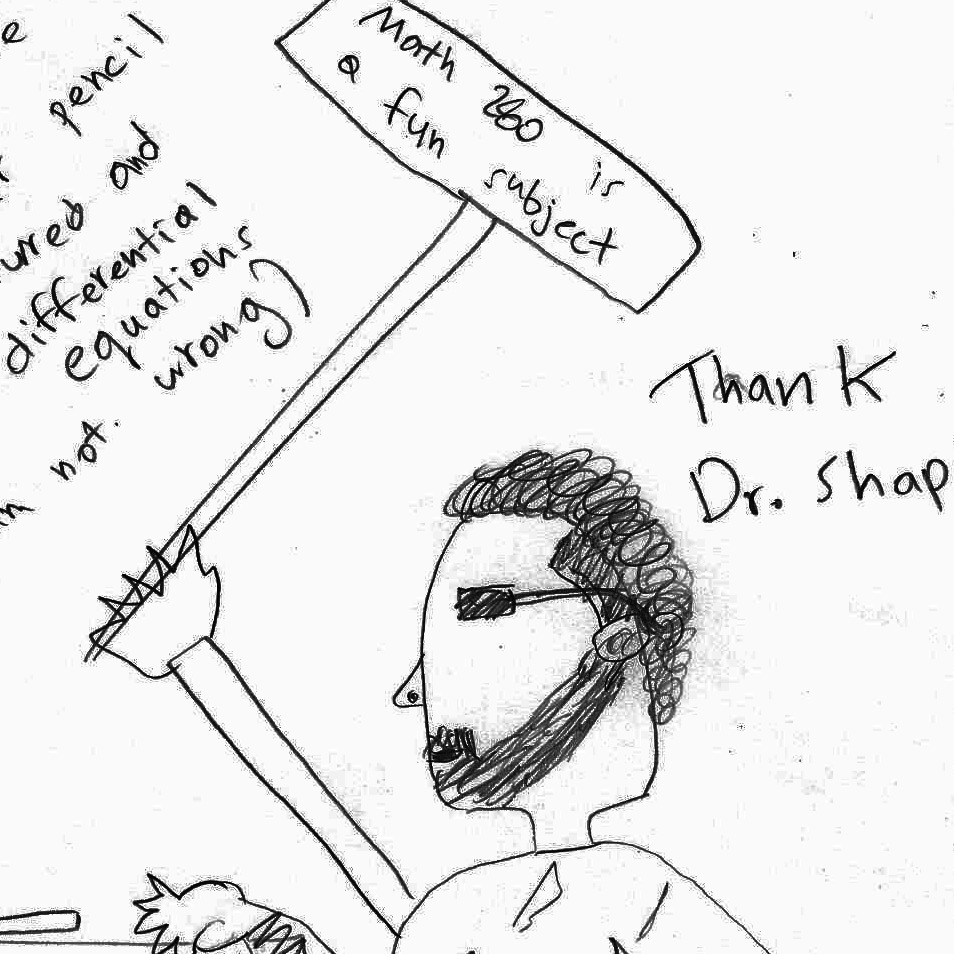 pencil
and
differential
equations
wrong)
not.
Math 260 is
a fun subject
Thank
Dr. Shap